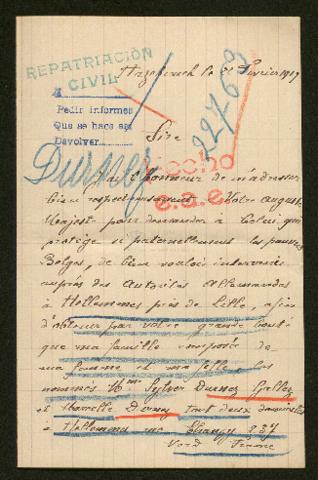 REPATRIACIÓN
CIVIL
Hazebrouck le 21 Février 1917
Pedir informes
Que se hace así
Devolver
22763
Sire
Durnez
Hecho
e.a.e.
J'ai l'honneur de m'adresser
bien respectueusement Votre Auguste
Majesté pour demander à Celui qui
protège si paternellement les pauvres
Belges, de bien vouloir intervenir
auprès des Autorités Allemandes
à Hellemmes près de Lille, afin
d'obtenir par votre grande bonté
que ma famille composée de
ma femme et ma fille, les
nommés Mme Sylver Durnez
et Marcelle Durnez tout deux
à Hellemmes rue Chanzy 837
Nord France